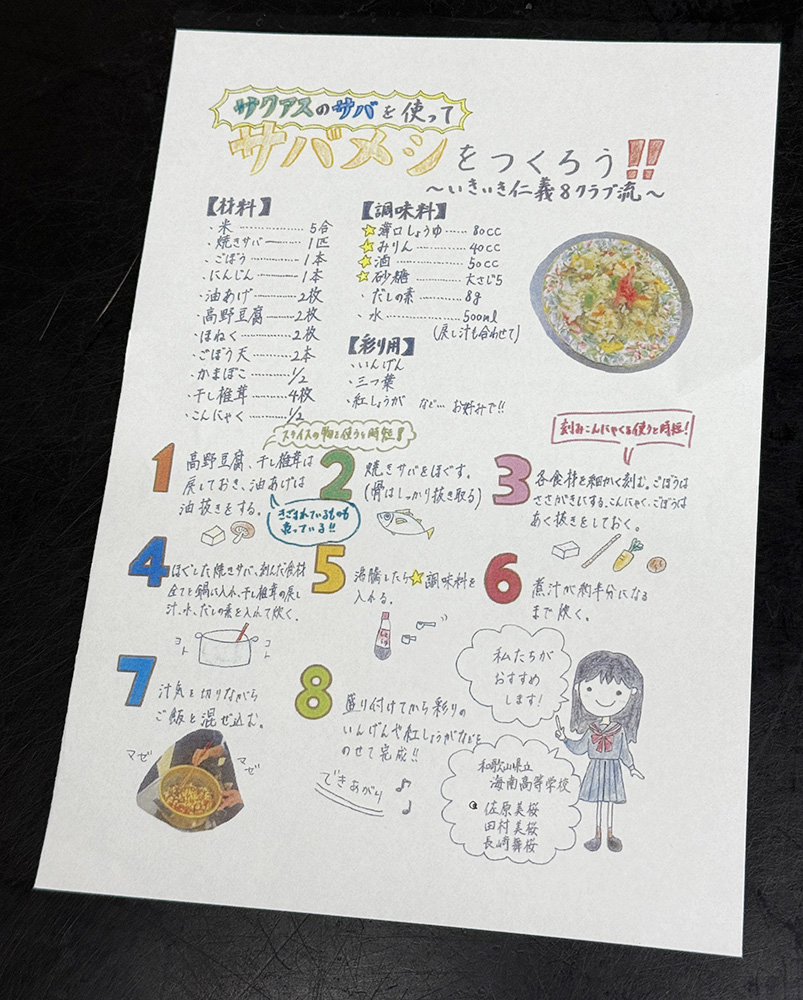 サワアスのサバを使って
サバメシをつくろう!!
～いきいき仁義8クラブ流～
【材料】
・米…………5合
・焼きサバ………1匹
・ごぼう…………1本
・にんじん…………1本
・油あげ…………2枚
・高野豆腐………2枚
・ほねく…………2枚
・ごぼう天…………2本
・かまぼこ…………1/2
・干し椎茸………4枚
・こんにゃく………1/2
【調味料】
☆薄口しょうゆ……80cc
☆みりん…………40cc
☆酒…………50cc
☆砂糖…………大さじ5
・だしの素………8g
・水…………500ml
(戻し汁も合わせて)
【彩り用】
・いんげん
・三つ葉
・紅しょうが など… お好みで!!
スライスの物を使うと時短!!
刻みこんにゃくを使うと時短!
1
高野豆腐、干し椎茸は
戻しておき、油あげは
油抜きをする。
きざまれているものも
売っている!!
2
焼きサバをほぐす。
(骨はしっかり抜き取る)
3
各食材を細かく刻む。ごぼうは
ささがきにする。こんにゃく、ごぼうは
あく抜きをしておく。
4
ほぐした焼きサバ、刻んだ食材
全てを鍋に入れ、干し椎茸の戻し
汁、水、だしの素を入れて炊く。
コト
コト
5
沸騰したら☆調味料を
入れる。
6
煮汁が約半分になる
まで炊く。
7
汁気を切りながら
ご飯と混ぜ込む。
マゼ
マゼ
8
盛り付けてから彩りの
いんげんや紅しょうがなどを
のせて完成!!
できあがり
私たちが
おすすめ
します!
和歌山県立
海南高等学校
佐原美桜
田村美桜
長﨑舞桜